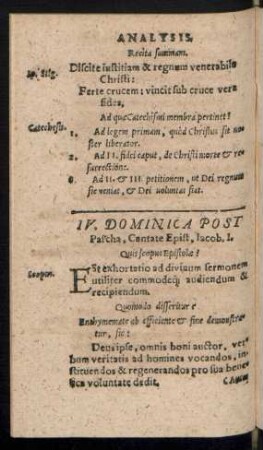 ANALYSIS.
Recita summam.
Discite iustitiam & regnum venerabile
Christi:
Ferte crucem: vincit sub cruce vera
fides,
Ad quæ Catechismi membra pertinet?
Catechisti.
1. Ad legem primam, quòd Christus sit no-
ster liberator.
2. Ad II. fidei caput, de Christi morte & re-
surrectione.
3. Ad II. & III. petitionem, ut Dei regnum
sic veniat, & Dei voluntas fiat.
IV. DOMINICA POST
Pascha, Cantate Epist, Iacob. I.
Quis scopus Epistolæ?
Scopus.
Est exhortatio ad divinum sermonem
utiliter commodeq; audiendum &
recipiendum.
Quomodo disseritur?
Enthymemate ab efficiente & fine demonstra-
tur, sic:
Deus ipse, omnis boni auctor, ver-
bum veritatis ad homines vocandos, in-
stituendos & regenerandos pro sua bene-
fica voluntate dedit.